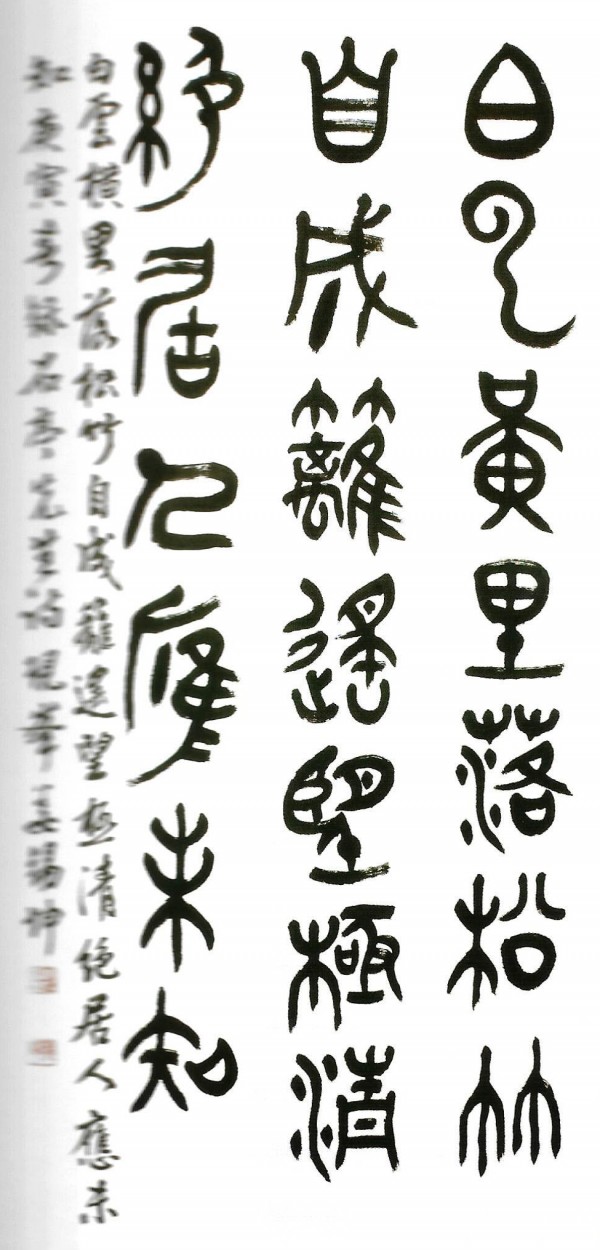 白云黃里落松竹
自成籬遙望極清
絶居人應未知
白雲橫里落松竹自成籬遙望極清絶居人應未
知庚寅春錄石先生詩硯華姜錫坤